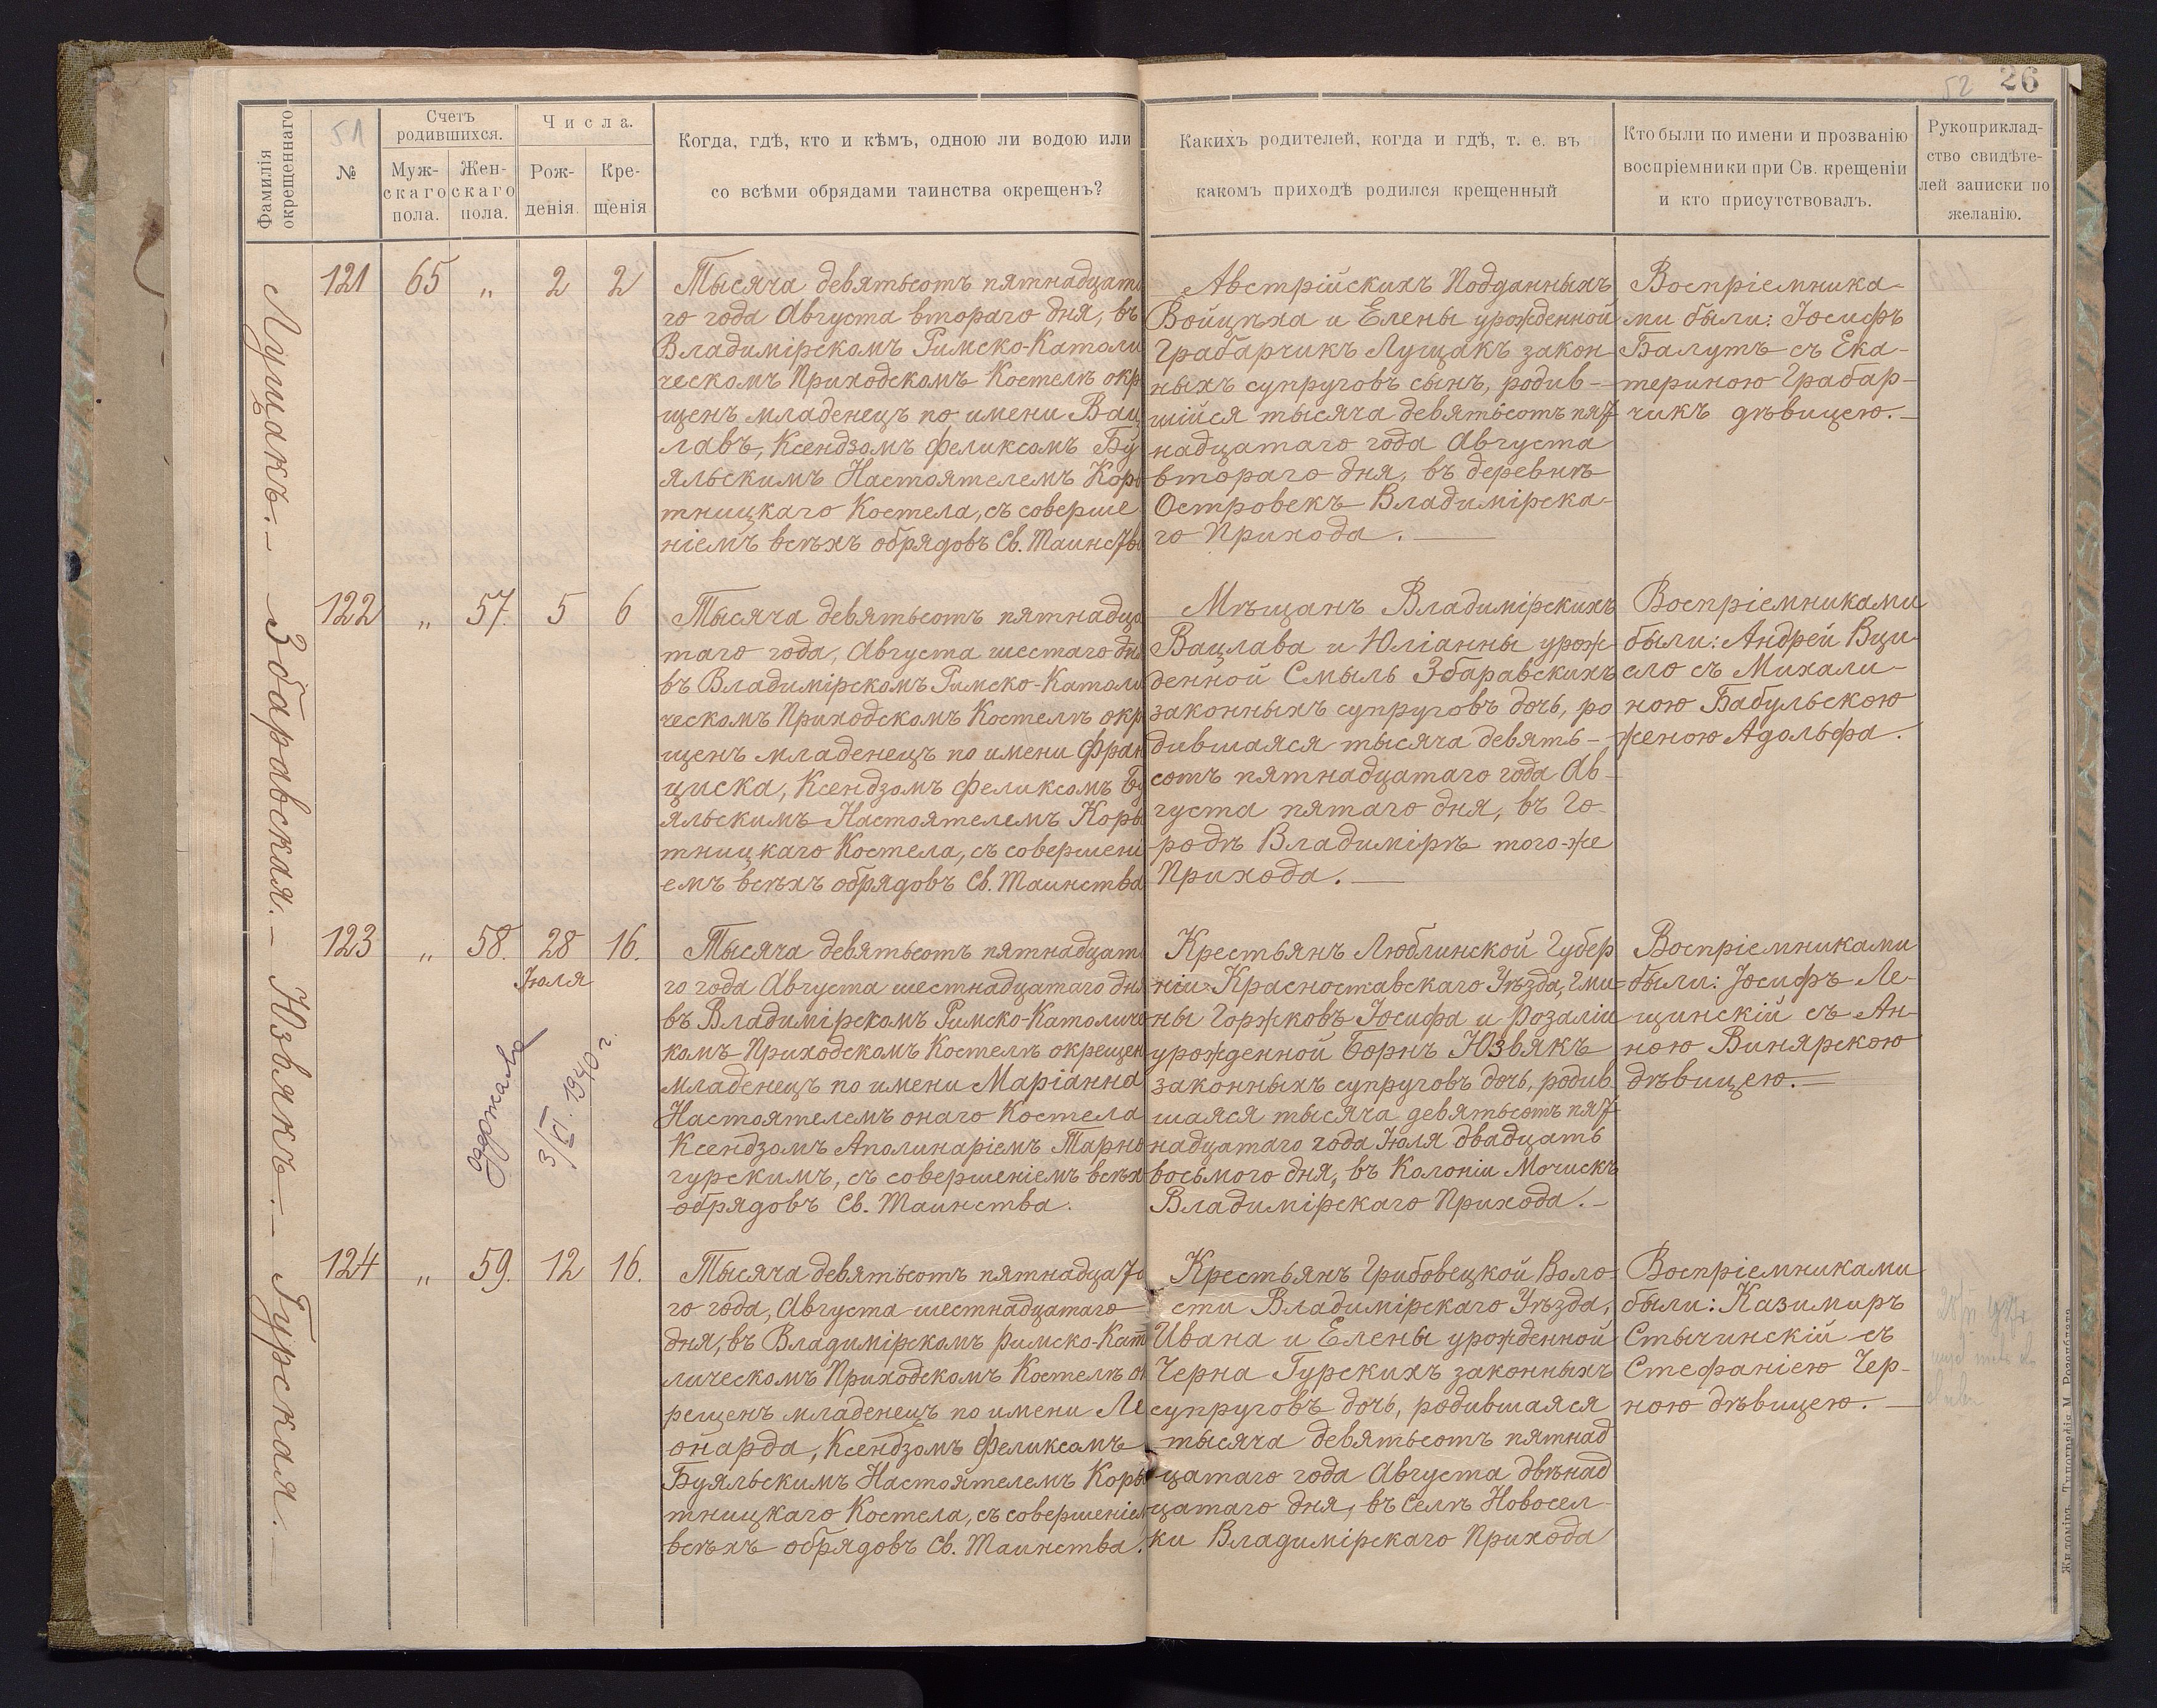 52 26
Фамилія
окрещеннаго
51
№
Счетъ
родившихся.
Муж-
скаго
пола.
Жен-
скаго
пола.
Числа.
Рож-
денія
Кре-
щенія
Когда, гдѣ, кто и кѣмъ, одною ли водою или
со всѣми обрядами таинства окрещенъ?
Какихъ родителей, когда и гдѣ, т. е. въ
какомъ приходѣ родился крещенный
Кто были по имени и прозванію
воспріемники при Св. крещеніи
и кто присутствовалъ.
Рукоприклад-
ство свидѣте-
лей записки по
желанію.
Лущакъ.-
121 65 „ 2 2
Тысяча девятьсотъ пятнадцата
го года Августа втораго дня, въ
Владимірскомъ Римско-Католи
ческомъ Приходскомъ Костелѣ окр
щенъ младенецъ по имени Вац
лавъ, Ксендзомъ Феликсомъ Бу
яльскимъ Настоятелемъ Коры
тницкаго Костела, съ соверше
ніемъ всѣхъ обрядовъ Св. Таинства
Австрійскихъ Подданныхъ
Войцѣха и Елены урожденной
Грабарчикъ Лущакъ закон
ныхъ супруговъ сынъ, родив-
шійся тысяча девятьсотъ пят
надцатаго года Августа
втораго дня, въ деревнѣ
Островекъ Владимірска-
го Прихода.
Воспріемника-
ми были: Іосифъ
Балутъ съ Ека-
териною Грабар-
чикъ дѣвицею.-
Збаравская.-
122 „ 57. 5 6
Тысяча девятьсотъ пятнадца
таго года, Августа шестаго дня
въ Владимірскомъ Римско-Католи
ческомъ Приходскомъ Костелѣ окр
щенъ младенецъ по имени Фран
циска, Ксендзомъ Феликсомъ Бу
яльскимъ Настоятелемъ Коры
тницкаго Костела, съ совершені
емъ всѣхъ обрядовъ Св. Таинства
Мѣщанъ Владимірскихъ
Вацлава и Юліанны урож-
денной Смыль Збаравскихъ
законныхъ супруговъ дочь, ро
дившаяся тысяча девять-
сотъ пятнадцатаго года Ав-
густа пятаго дня, въ Го-
родѣ Владимірѣ того-же
Прихода.
Воспріемниками
были: Андрей Вци-
сло съ Михали-
ною Бабульскою
женою Адольфа.
Юзвякъ.-
123 „ 58. 28 16.
Іюля
Одержала
3/VI. 1940 г.
Тысяча девятьсотъ пятнадцата
го года Августа шестнадцатаго дня
въ Владимірскомъ Римско-Католиче
комъ Приходскомъ Костелѣ окрещен
младенецъ по имени Маріанна
Настоятелемъ онаго Костела
Ксендзомъ Аполинаріемъ Тарно
гурскимъ, съ совершеніемъ всѣхъ
обрядовъ Св. Таинства.
Крестьянъ Люблинской Губер
ніи Красноставскаго Уѣзда, Гми-
ны Горжковъ Іосифа и Розаліи
урожденной Борнъ Юзвякъ
законныхъ супруговъ дочь, родив-
шаяся тысяча девятьсотъ пят
надцатаго года Іюля двадцать
восьмого дня, въ Колоніи Мочискъ
Владимірскаго Прихода.-
Воспріемниками
были: Іосифъ Ле-
щинскій съ Ан-
ною Винярскою
дѣвицею.-
Гурская.-
124 „ 59. 12 16.
Тысяча девятьсотъ пятнадцато
го года, Августа шестнадцатаго
дня, въ Владимірскомъ Римско-Кат
лическомъ Приходскомъ Костелѣ ок
рещенъ младенецъ по имени Ле
онарда, Ксендзомъ Феликсомъ
Буяльскимъ Настоятелемъ Коры
тницкаго Костела, съ совершеніем
всѣхъ обрядовъ Св. Таинства.
Крестьянъ Грибовецкой Воло-
сти Владимірскаго Уѣзда,
Ивана и Елены урожденной
Черна Гурскихъ законныхъ
супруговъ дочь, родившаяся
тысяча девятьсотъ пятнад
цатаго года Августа двѣнад
цатаго дня, въ Селѣ Новосел-
ки Владимірскаго Прихода
Воспріемниками
были: Казимиръ
Стычинскій съ
Стефаніею Чер-
ною дѣвицею.-
Житоміръ. Типографія М. Розенблата